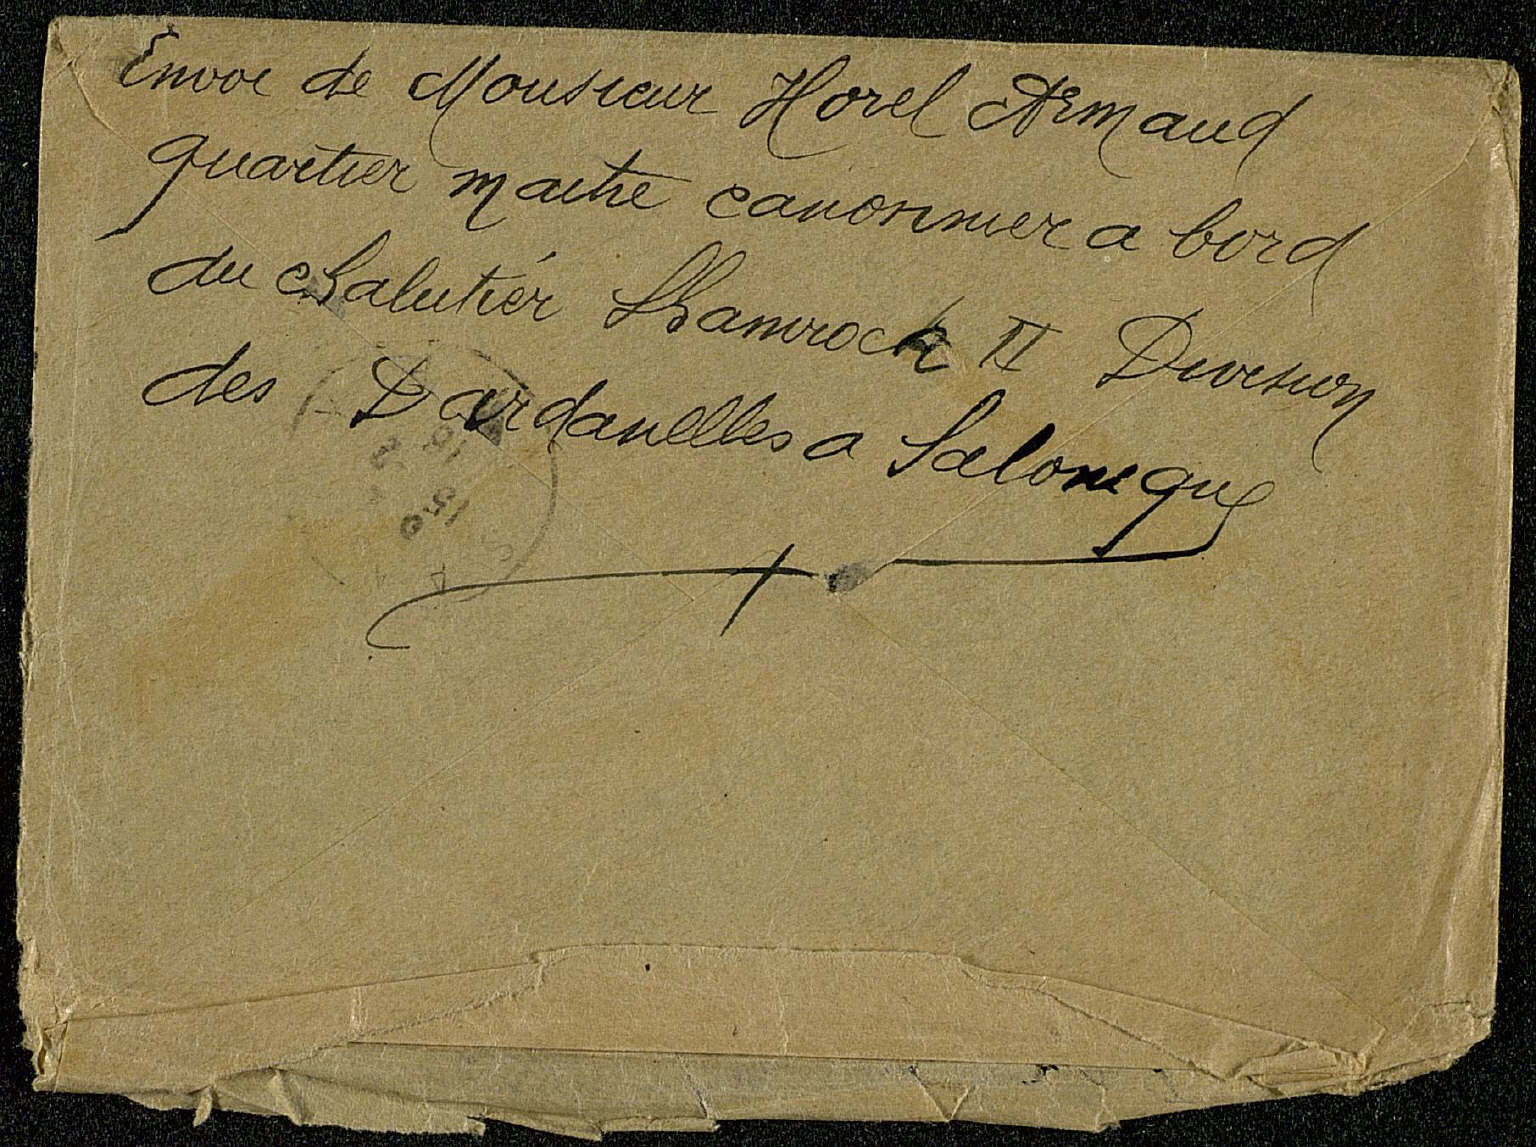 Envoi de Monsieur Horel Armand
quartier maitre canonnier a bord
du chalutiér Shamrock II Division
des Dardanelles a Salonique